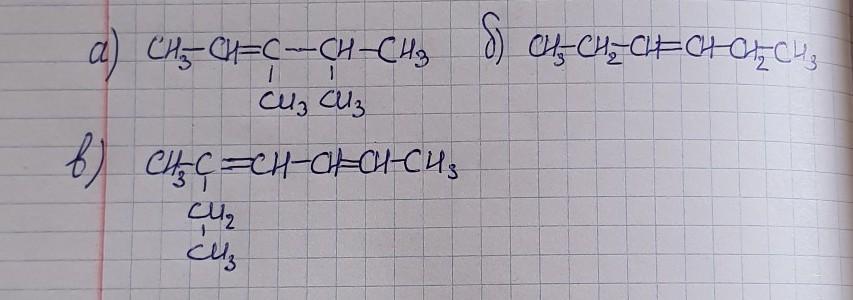 а) CH₃-CH=C-CH-CH₃ б) CH₃-CH₂-CH=CH-CH₂-CH₃
CH₃ CH₃
в) CH₃-C=CH-CH=CH-CH₃
CH₂
CH₃